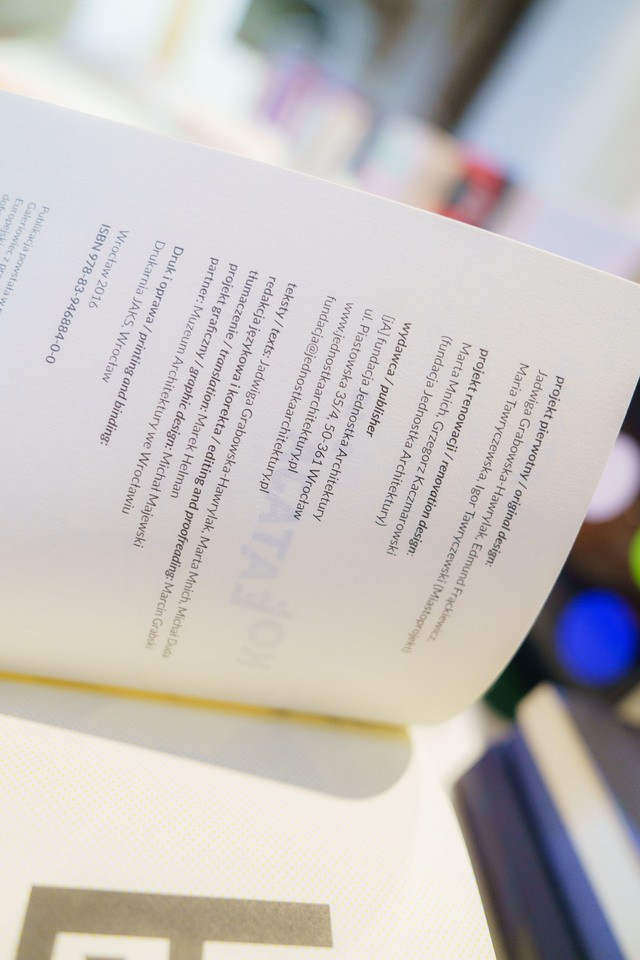 projekt pierwotny / original design:
Jadwiga Grabowska-Hawrylak, Edmund Frąckiewicz,
Marta Tawryczewska, Igor Tawryczewski (Miastoprojekt)
projekt renowacji / renovation design:
Marta Mnich, Grzegorz Kaczmarowski
(fundacja Jednostka Architektury)
wydawca / publisher
[JA] fundacja Jednostka Architektury
ul. Piastowska 35/4, 50-361 Wrocław
www.jednostkaarchitektury.pl
fundacja@jednostkaarchitektury.pl
teksty / texts: Jadwiga Grabowska-Hawrylak, Marta Mnich, Michał Duda
redakcja językowa i korekta / editing and proofreading: Marcin Grabski
tłumaczenie / translation: Marek Helman
projekt graficzny / graphic design: Michał Majewski
partner: Muzeum Architektury we Wrocławiu
Druk i oprawa / printing and binding:
Drukarnia JAKS, Wrocław
Wrocław 2016
ISBN 978-83-946884-0-0
Publikacja powstała